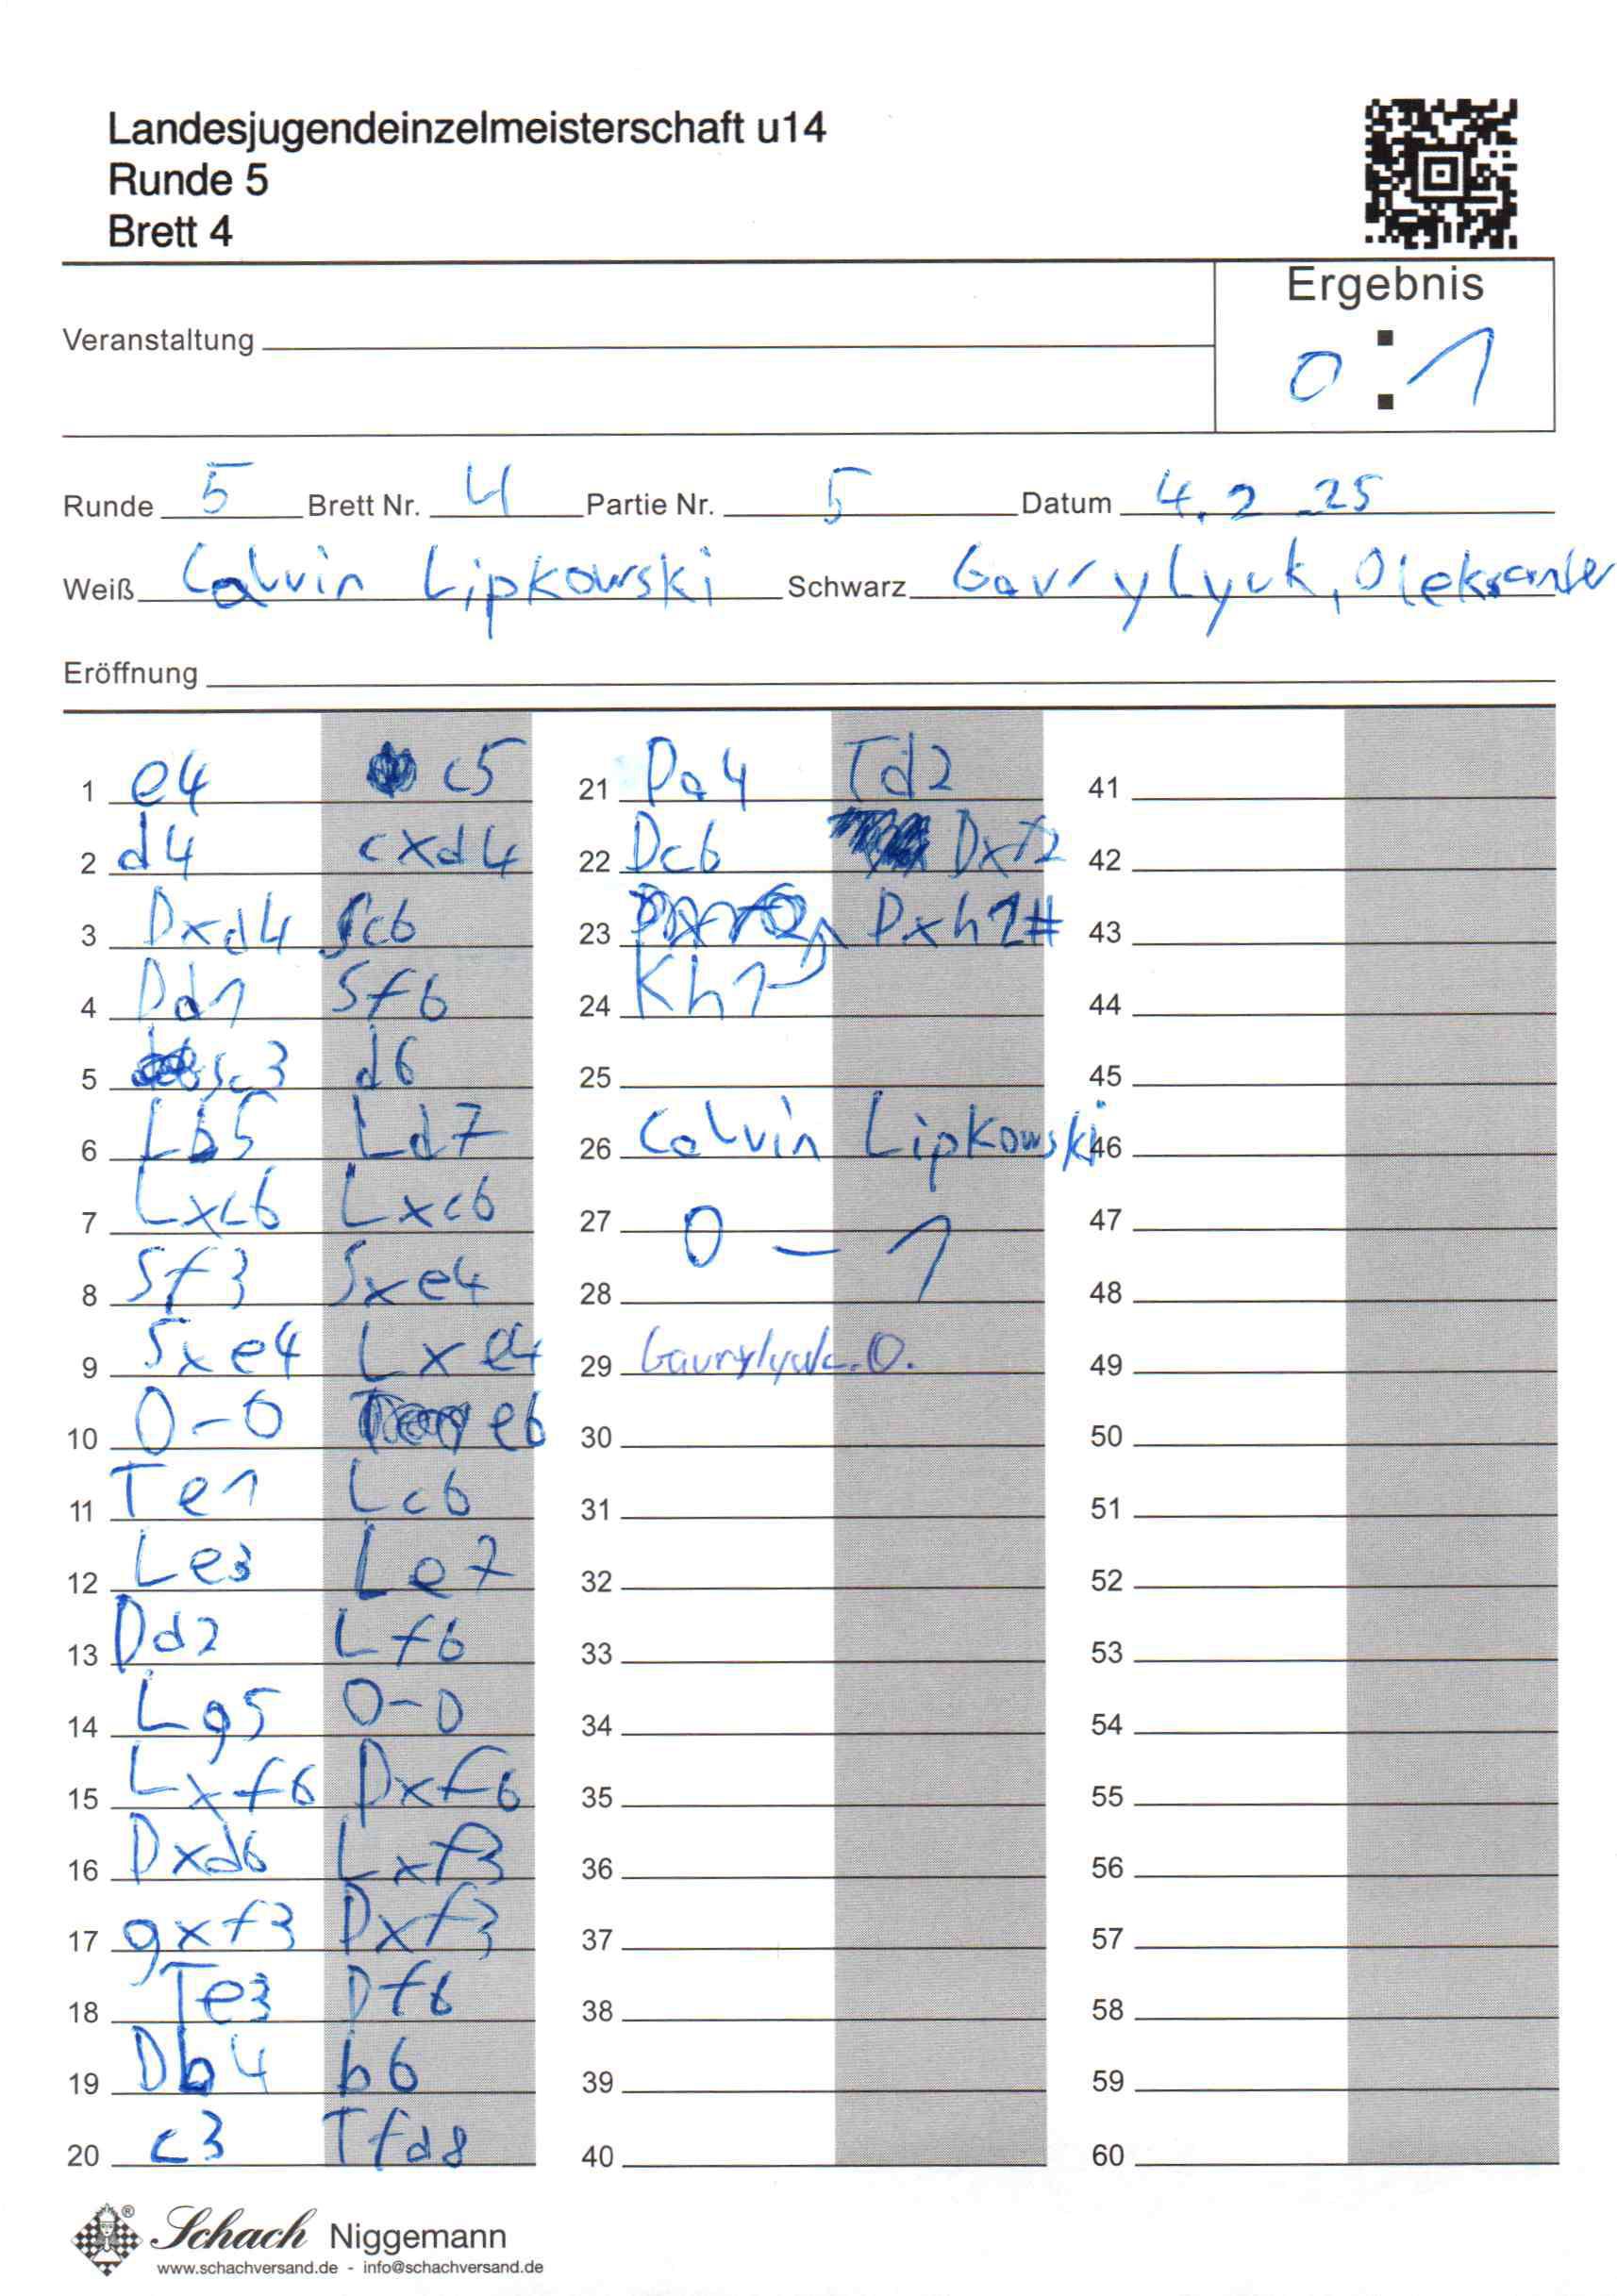 Landesjugendeinzelmeisterschaft u14
Runde 5
Brett 4
Ergebnis
0 : 1
Veranstaltung
Runde 5 Brett Nr. 4 Partie Nr. 5 Datum 4.2.25
Weiß Calvin Lipkowski Schwarz Gavrylyuk, Oleksander
Eröffnung
1 e4 c5
2 d4 cxd4
3 Dxd4 Sc6
4 Dd1 Sf6
5 Sc3 d6
6 Lb5 Ld7
7 Lxc6 Lxc6
8 Sf3 Sxe4
9 Sxe4 Lxe4
10 0-0 e6
11 Te1 Lc6
12 Le3 Le7
13 Dd2 Lf6
14 Lg5 0-0
15 Lxf6 Dxf6
16 Dxd6 Lxf3
17 gxf3 Dxf3
18 Te3 Df6
19 Db4 b6
20 c3 Tfd8
21 Da4 Td2
22 Dc6 Dxf2
23 Dxh2#
24 Kh1
25
26 Calvin Lipkowski
27 0 - 1
28
29 Gavrylyuk.O.
30
31
32
33
34
35
36
37
38
39
40
41
42
43
44
45
46
47
48
49
50
51
52
53
54
55
56
57
58
59
60
Schach Niggemann
www.schachversand.de - info@schachversand.de